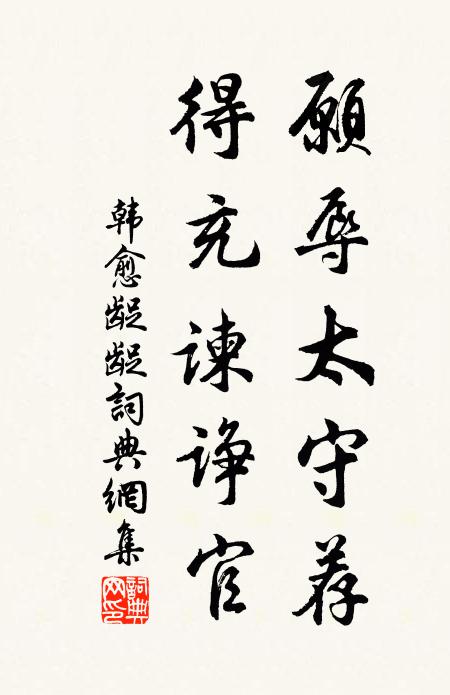 願辱太守荐
得充諫諍官
韩愈龊龊詞典網集
詞典網印